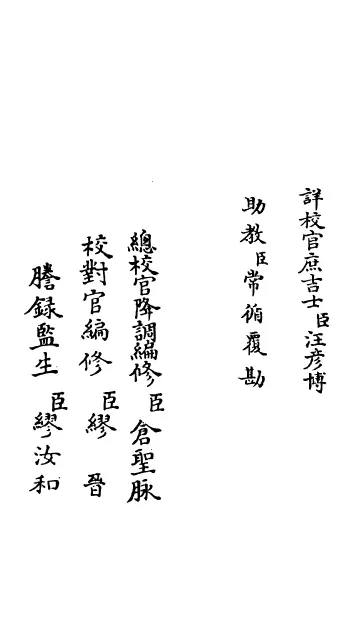 詳校官庶吉士臣汪彥博
助教臣常循覆勘
總校官降調編修臣倉聖脉
校對官編修臣繆晉
謄録監生臣繆汝和